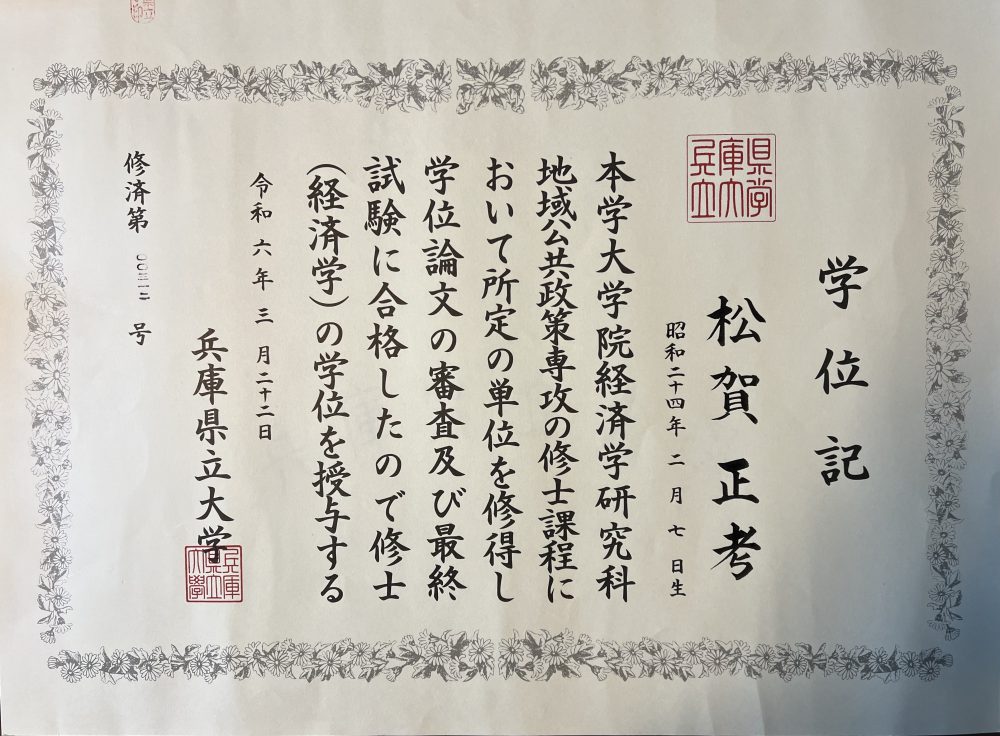 学位記
兵庫県立大学
松賀正考
昭和二十四年二月七日生
本学大学院経済学研究科
地域公共政策専攻の修士課程に
おいて所定の単位を修得し
学位論文の審査及び最終
試験に合格したので修士
(経済学)の学位を授与する
令和六年三月二十二日
兵庫県立大学
修済第
号